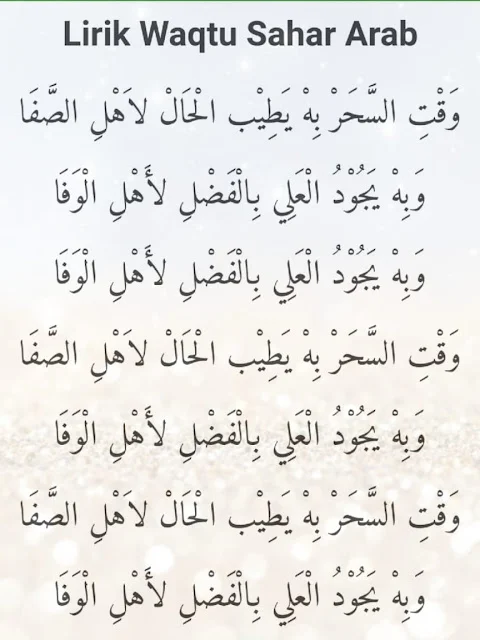 Lirik Waqtu Sahar Arab
وَقْتِ السَّحَرْ بِهْ يَطِيْب الْحَالْ لاَهْلِ الصَّفَا
وَبِهْ يَجُوْدُ الْعَلِي بِالْفَضْلِ لأَهْلِ الْوَفَا
وَبِهْ يَجُوْدُ الْعَلِي بِالْفَضْلِ لأَهْلِ الْوَفَا
وَقْتِ السَّحَرْ بِهْ يَطِيْب الْحَالْ لاَهْلِ الصَّفَا
وَبِهْ يَجُوْدُ الْعَلِي بِالْفَضْلِ لأَهْلِ الْوَفَا
وَقْتِ السَّحَرْ بِهْ يَطِيْب الْحَالْ لاَهْلِ الصَّفَا
وَبِهْ يَجُوْدُ الْعَلِي بِالْفَضْلِ لأَهْلِ الْوَفَا